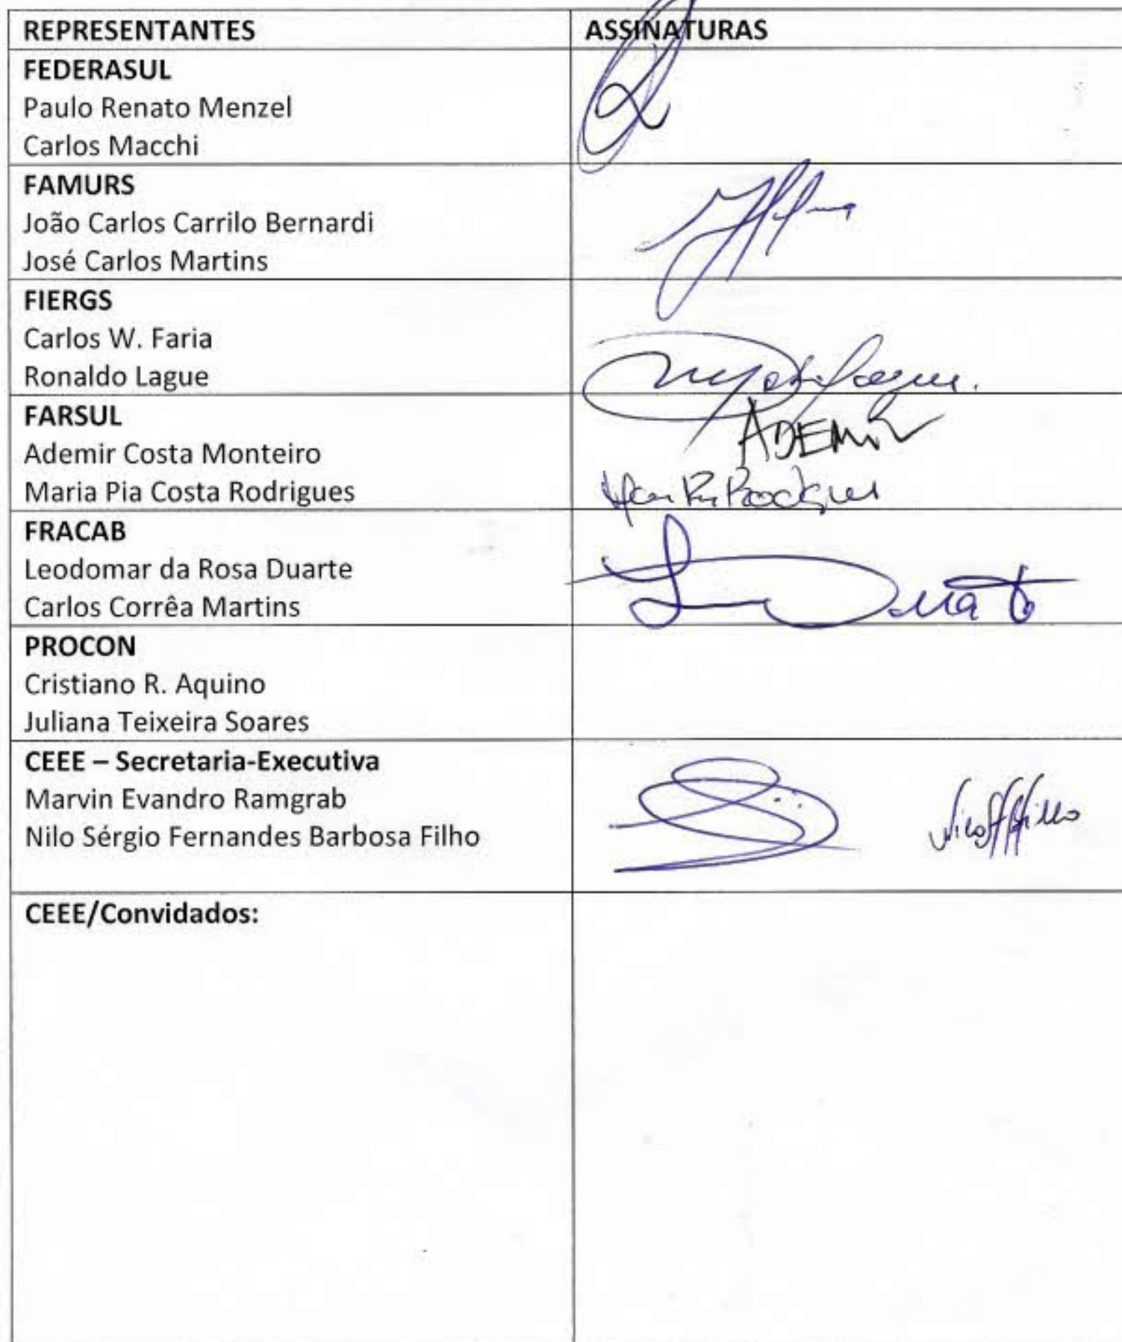 REPRESENTANTES
ASSINATURAS
FEDERASUL
Paulo Renato Menzel
Carlos Macchi
FAMURS
João Carlos Carrilo Bernardi
José Carlos Martins
FIERGS
Carlos W. Faria
Ronaldo Lague
FARSUL
ADEMIR
Ademir Costa Monteiro
Maria Pia Costa Rodrigues
FRACAB
Leodomar da Rosa Duarte
Carlos Corrêa Martins
PROCON
Cristiano R. Aquino
Juliana Teixeira Soares
CEEE – Secretaria-Executiva
Marvin Evandro Ramgrab
Nilo Sérgio Fernandes Barbosa Filho
CEEE/Convidados: